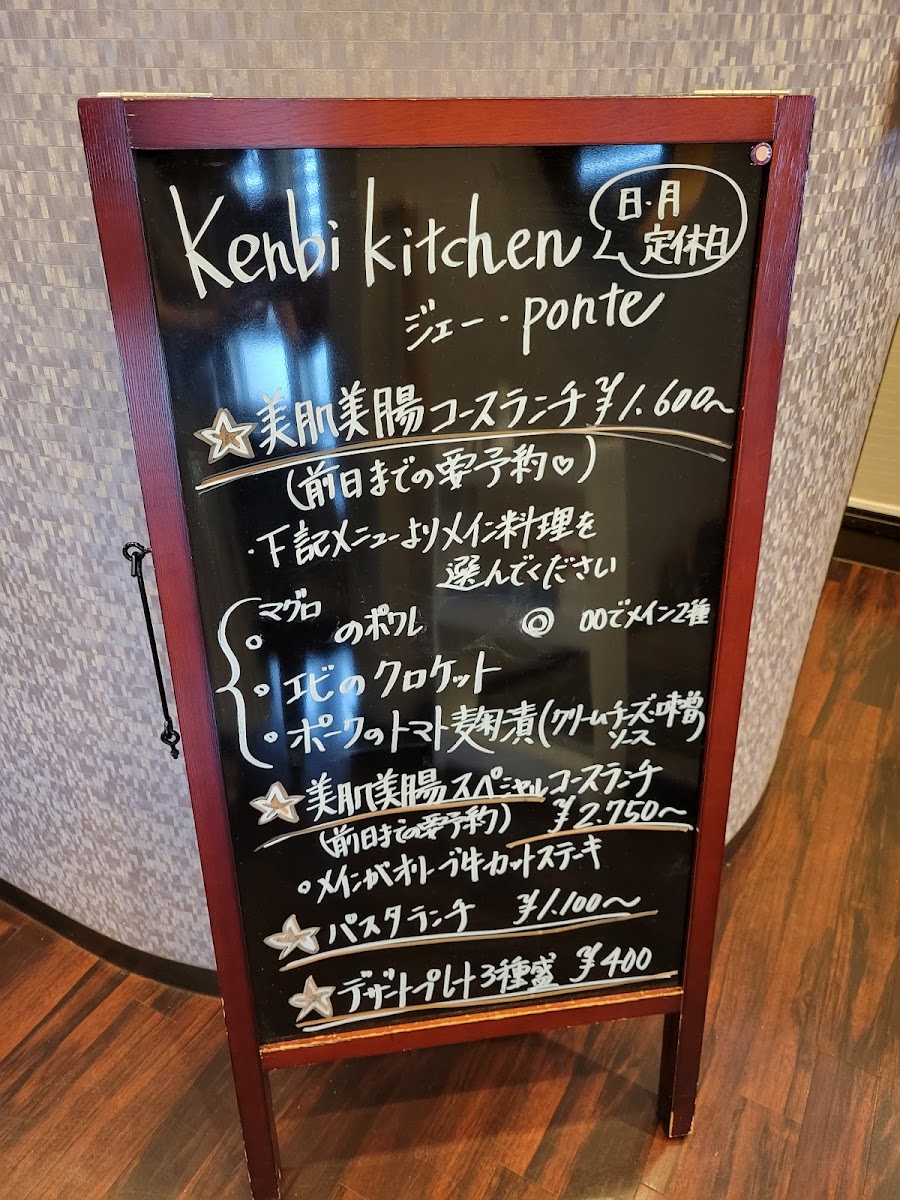 Kenbi kitchen
日・月
定休日
ジェー・ponte
美肌美腸コースランチ ¥1.600〜
(前日までの要予約♡)
・下記メニューよりメイン料理を
選んでください
マグロ
のポワレ
◎ 00でメイン2種
エビのクロケット
ポークのトマト麹漬(クリームチーズ・味噌
ソース)
美肌美腸スペシャルコースランチ
(前日までの要予約) ¥2.750〜
メインがオリーブ牛カットステーキ
パスタランチ ¥1.100〜
デザートプレート3種盛 ¥400